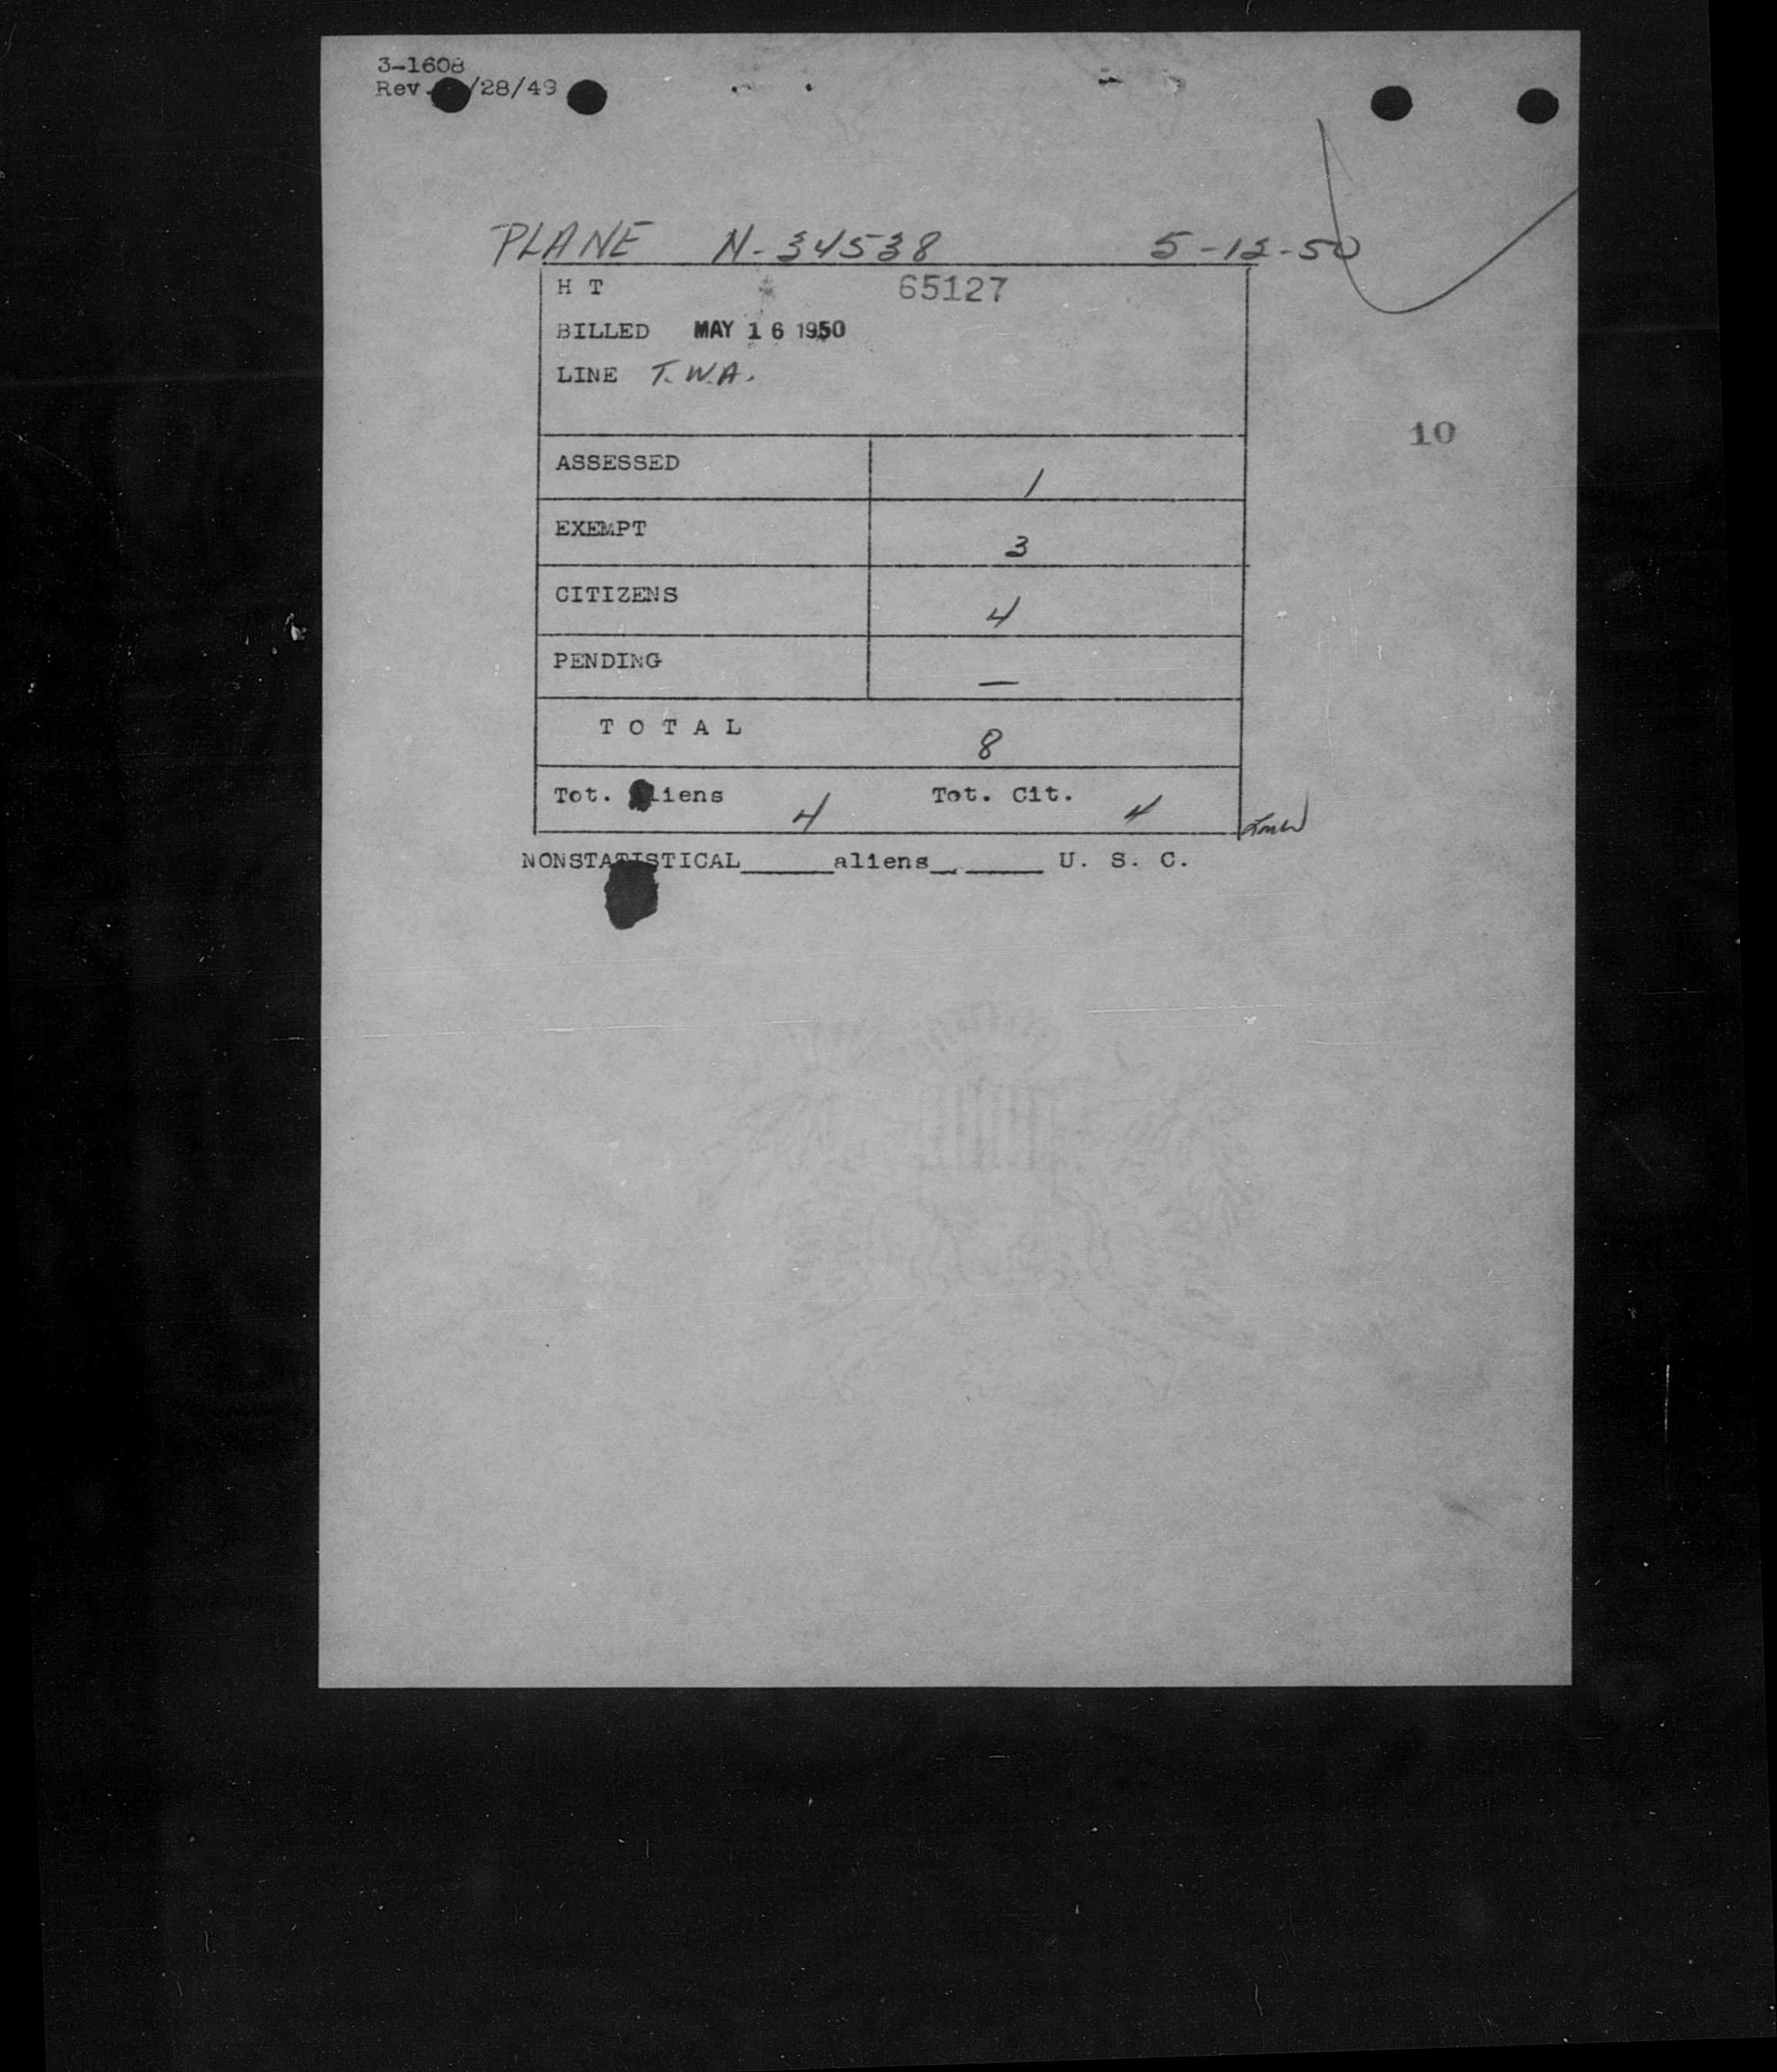 3-1608
Rev. /28/49
PLANE N-34538 5-12-50
H T 65127
BILLED MAY 16 1950
LINE T.W.A.
10
ASSESSED 1
EXEMPT 3
CITIZENS 4
PENDING —
T O T A L 8
Tot. Aliens 4 Tot. Cit. 4
NONSTATISTICAL______aliens_______ U. S. C.